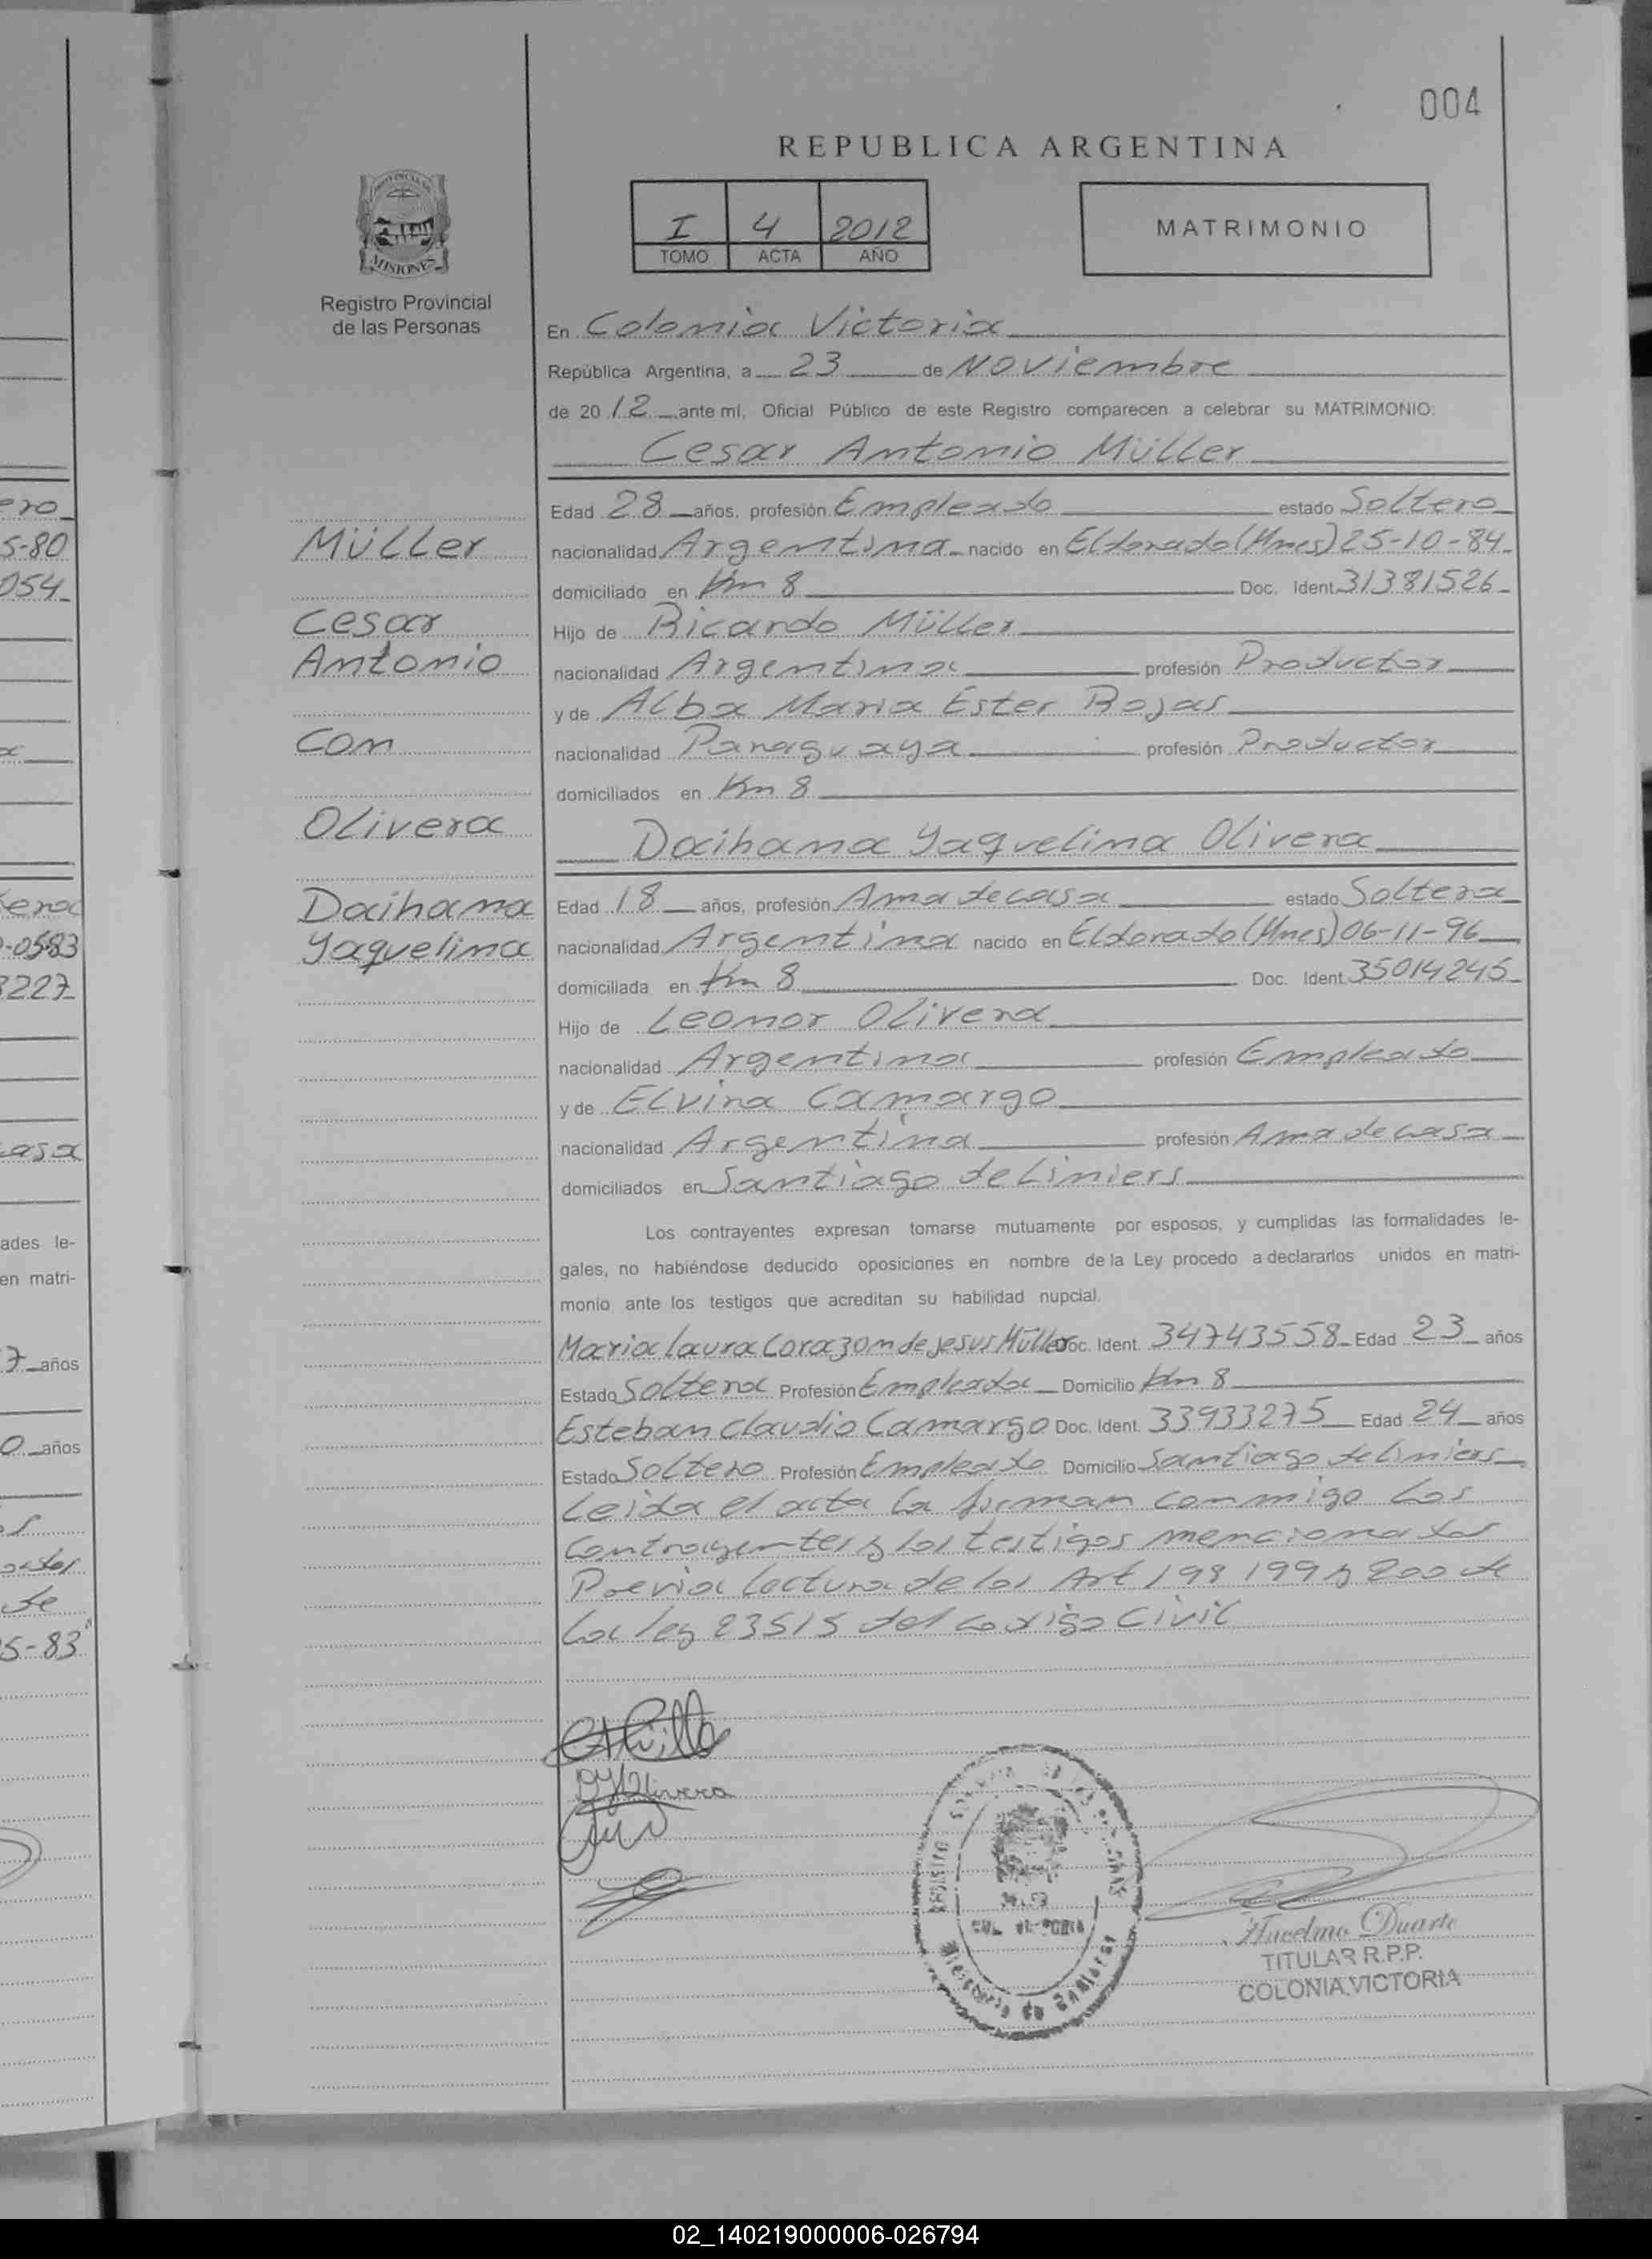 004
REPUBLICA ARGENTINA
I 4 2012
TOMO ACTA AÑO
MATRIMONIO
MISIONES
Registro Provincial
de las Personas
En Colonia Victoria
República Argentina, a 23 de Noviembre
de 2012 ante mí, Oficial Público de este Registro comparecen a celebrar su MATRIMONIO:
Cesar Antonio Müller
Edad 28 años, profesión Empleado estado Soltero
nacionalidad Argentina nacido en Eldorado (Mnes) 25-10-84
domiciliado en Km 8 Doc. Ident. 31381526
Hijo de Ricardo Müller
nacionalidad Argentina profesión Productor
y de Alba Maria Ester Rojas
nacionalidad Paraguaya profesión Productor
domiciliados en Km 8
Müller
Cesar
Antonio
Con
Olivera
Daihana
Yaquelina
Daihana Yaquelina Olivera
Edad 18 años, profesión Ama de casa estado Soltera
nacionalidad Argentina nacido en Eldorado (Mnes) 06-11-96
domiciliada en Km 8 Doc. Ident. 35014245
Hijo de Leonor Olivera
nacionalidad Argentina profesión Empleado
y de Elvira Camargo
nacionalidad Argentina profesión Ama de casa
domiciliados en Santiago de Liniers
Los contrayentes expresan tomarse mutuamente por esposos, y cumplidas las formalidades le-
gales, no habiéndose deducido oposiciones en nombre de la Ley procedo a declararlos unidos en matri-
monio ante los testigos que acreditan su habilidad nupcial.
Maria Laura Corazon de Jesus Müller Doc. Ident. 34743558 Edad 23 años
Estado Soltera Profesión Empleada Domicilio Km 8
Esteban Claudio Camargo Doc. Ident. 33933275 Edad 24 años
Estado Soltero Profesión Empleado Domicilio Santiago de Liniers
Leida el acta la firman conmigo los
Contrayentes y los testigos mencionados
Previa lectura de los Art 198 199 y 200 de
la ley 23515 del codigo Civil
DYOlivera
Duarte
TITULAR R.P.P.
COLONIA VICTORIA
ero
5-80
054
era
-0583
3227
casa
ades le-
en matri-
7 años
0 años
de
5-83
02_140219000006-026794